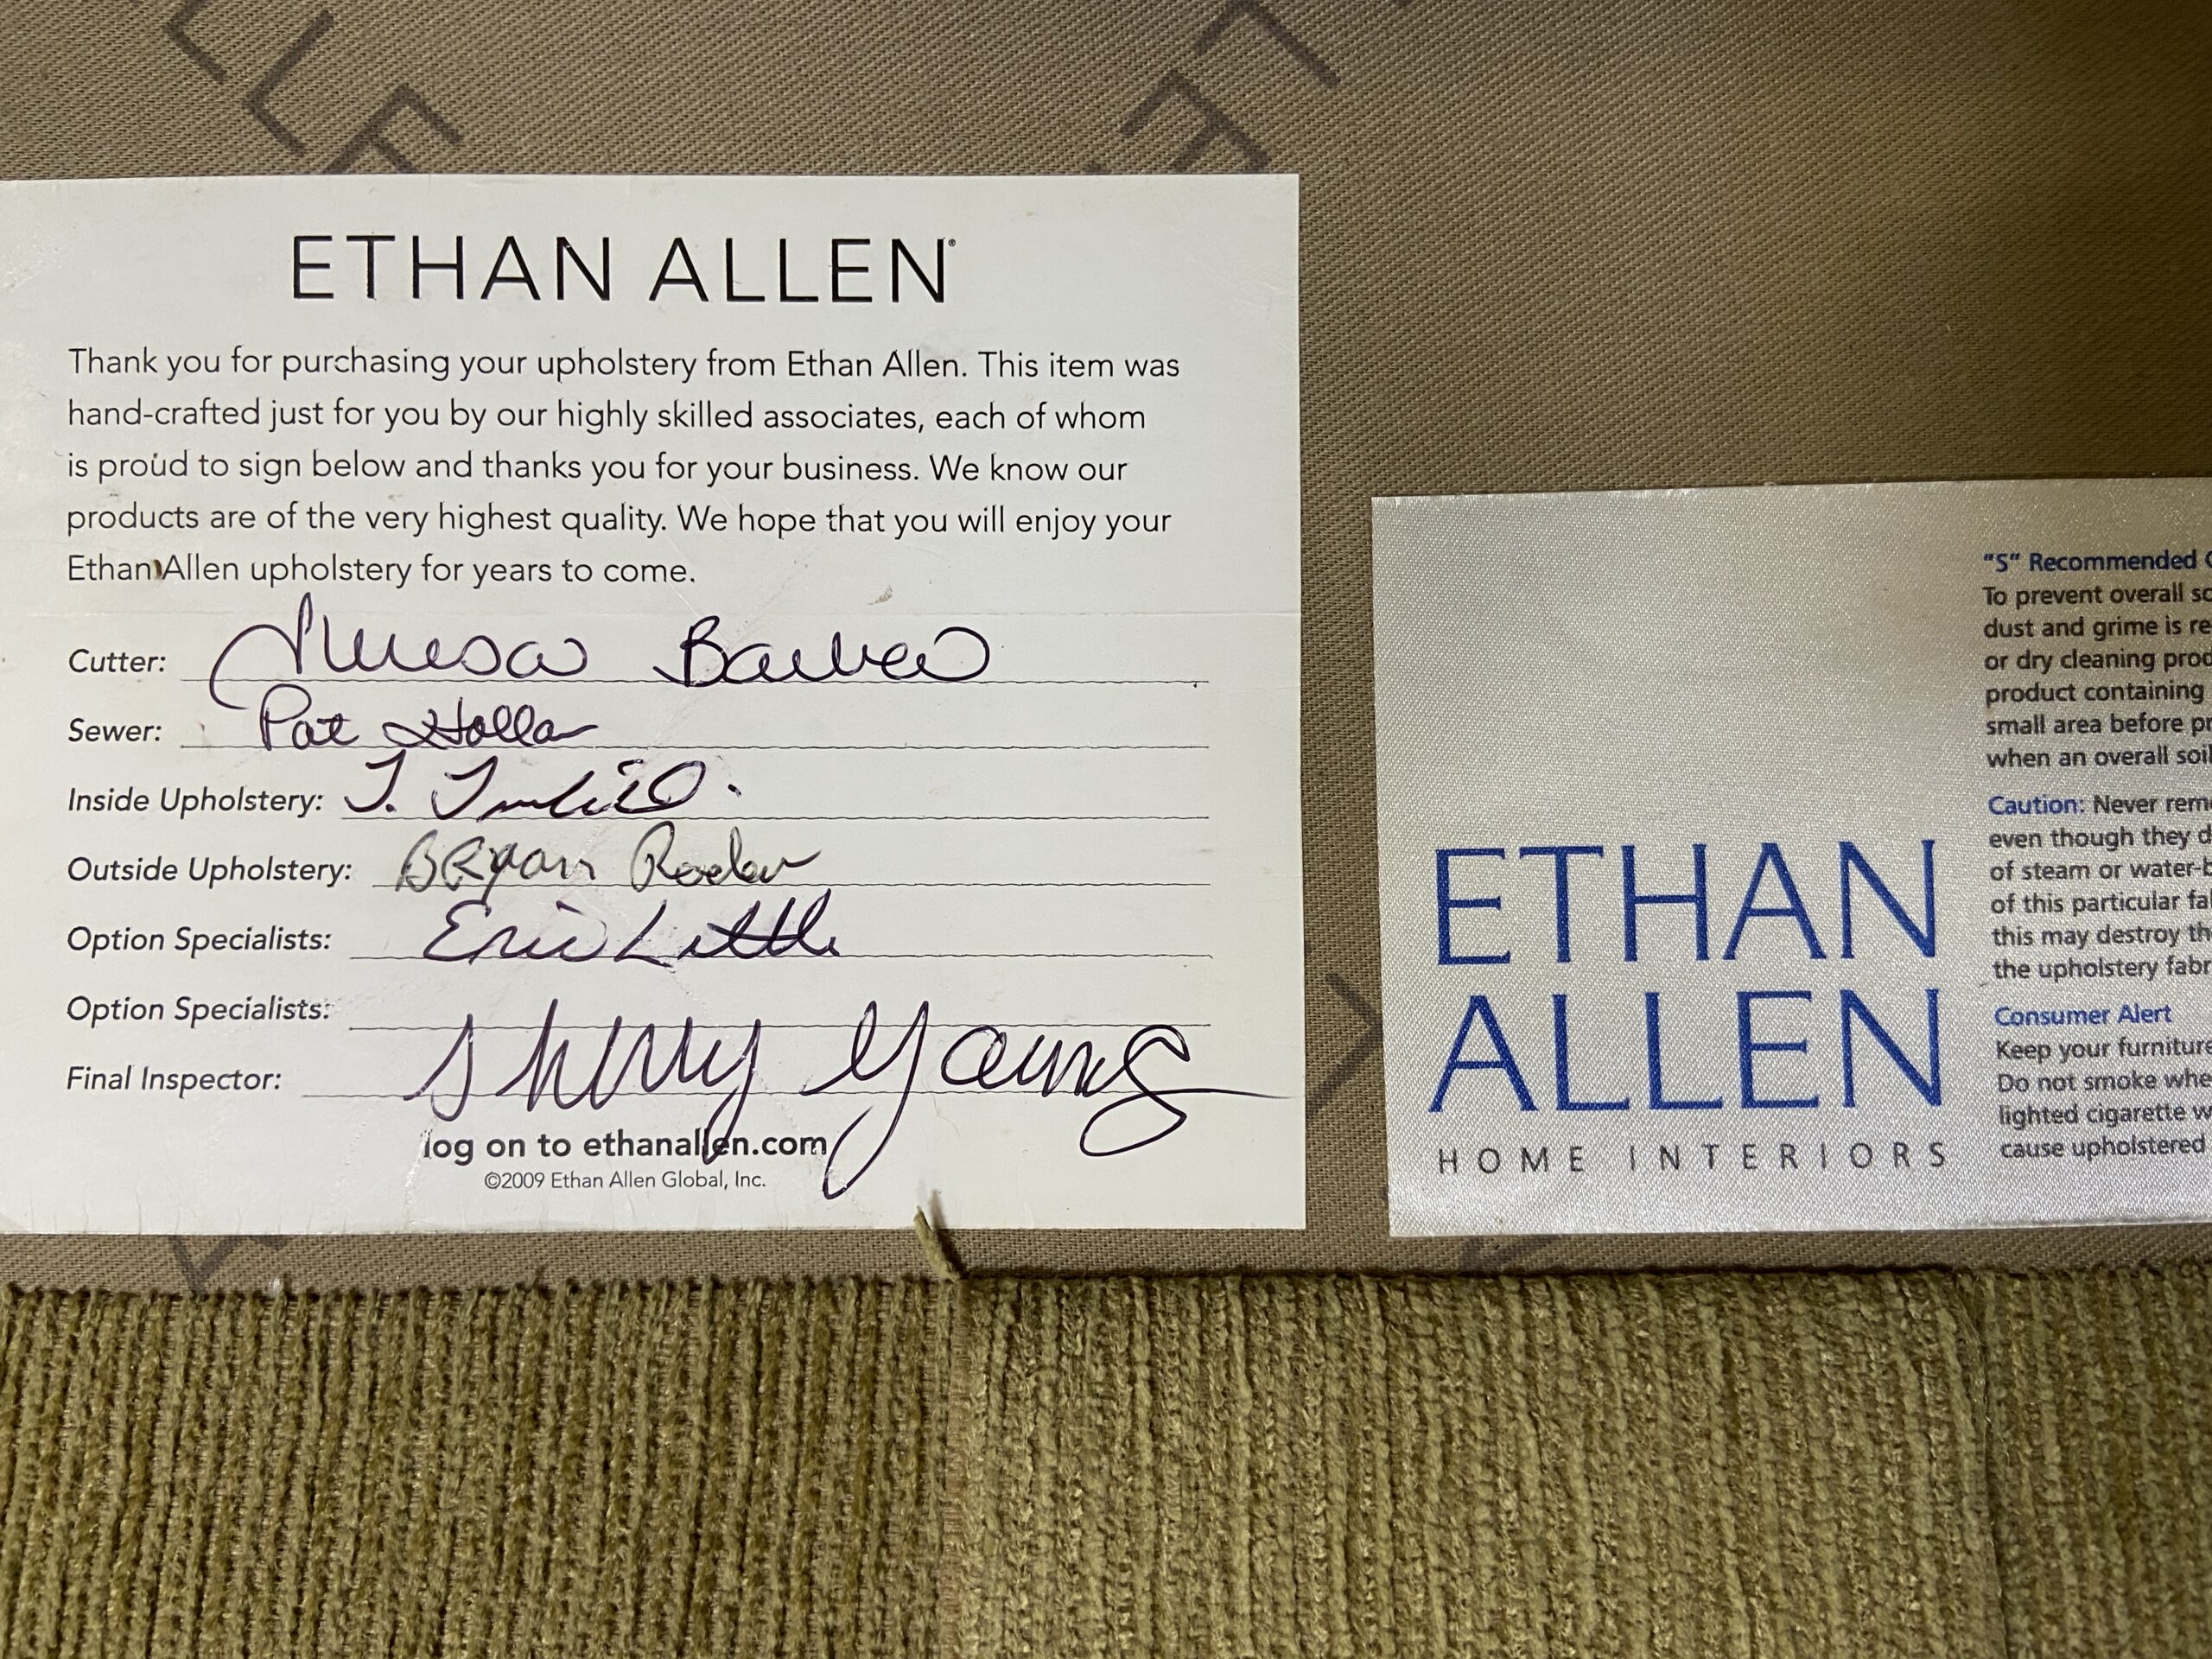 ETHAN ALLEN®
Thank you for purchasing your upholstery from Ethan Allen. This item was
hand-crafted just for you by our highly skilled associates, each of whom
is proud to sign below and thanks you for your business. We know our
products are of the very highest quality. We hope that you will enjoy your
Ethan Allen upholstery for years to come.
Cutter:
Sewer: Pat
Inside Upholstery: J.
Outside Upholstery: BRyan
Option Specialists: Eric Little
Option Specialists:
Final Inspector: Sherry Young
log on to ethanallen.com
©2009 Ethan Allen Global, Inc.
ETHAN
ALLEN
HOME INTERIORS
"S" Recommended
To prevent overall
dust and grime is
or dry cleaning
product containing
small area before
when an overall
Caution: Never
even though they
of steam or
of this particular
this may destroy
the upholstery
Consumer Alert
Keep your furniture
Do not smoke
lighted cigarette
cause upholstered